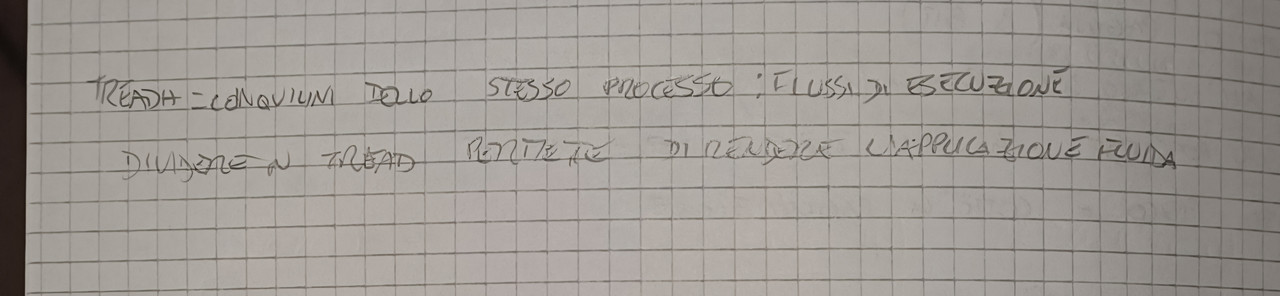 TREADH = CONQUILINI DELLO STESSO PROCESSO : FLUSSI DI ESECUZIONE
DIVIDERE IN TREAD PERMETTE DI RENDERE L'APPLICAZIONE FLUIDA